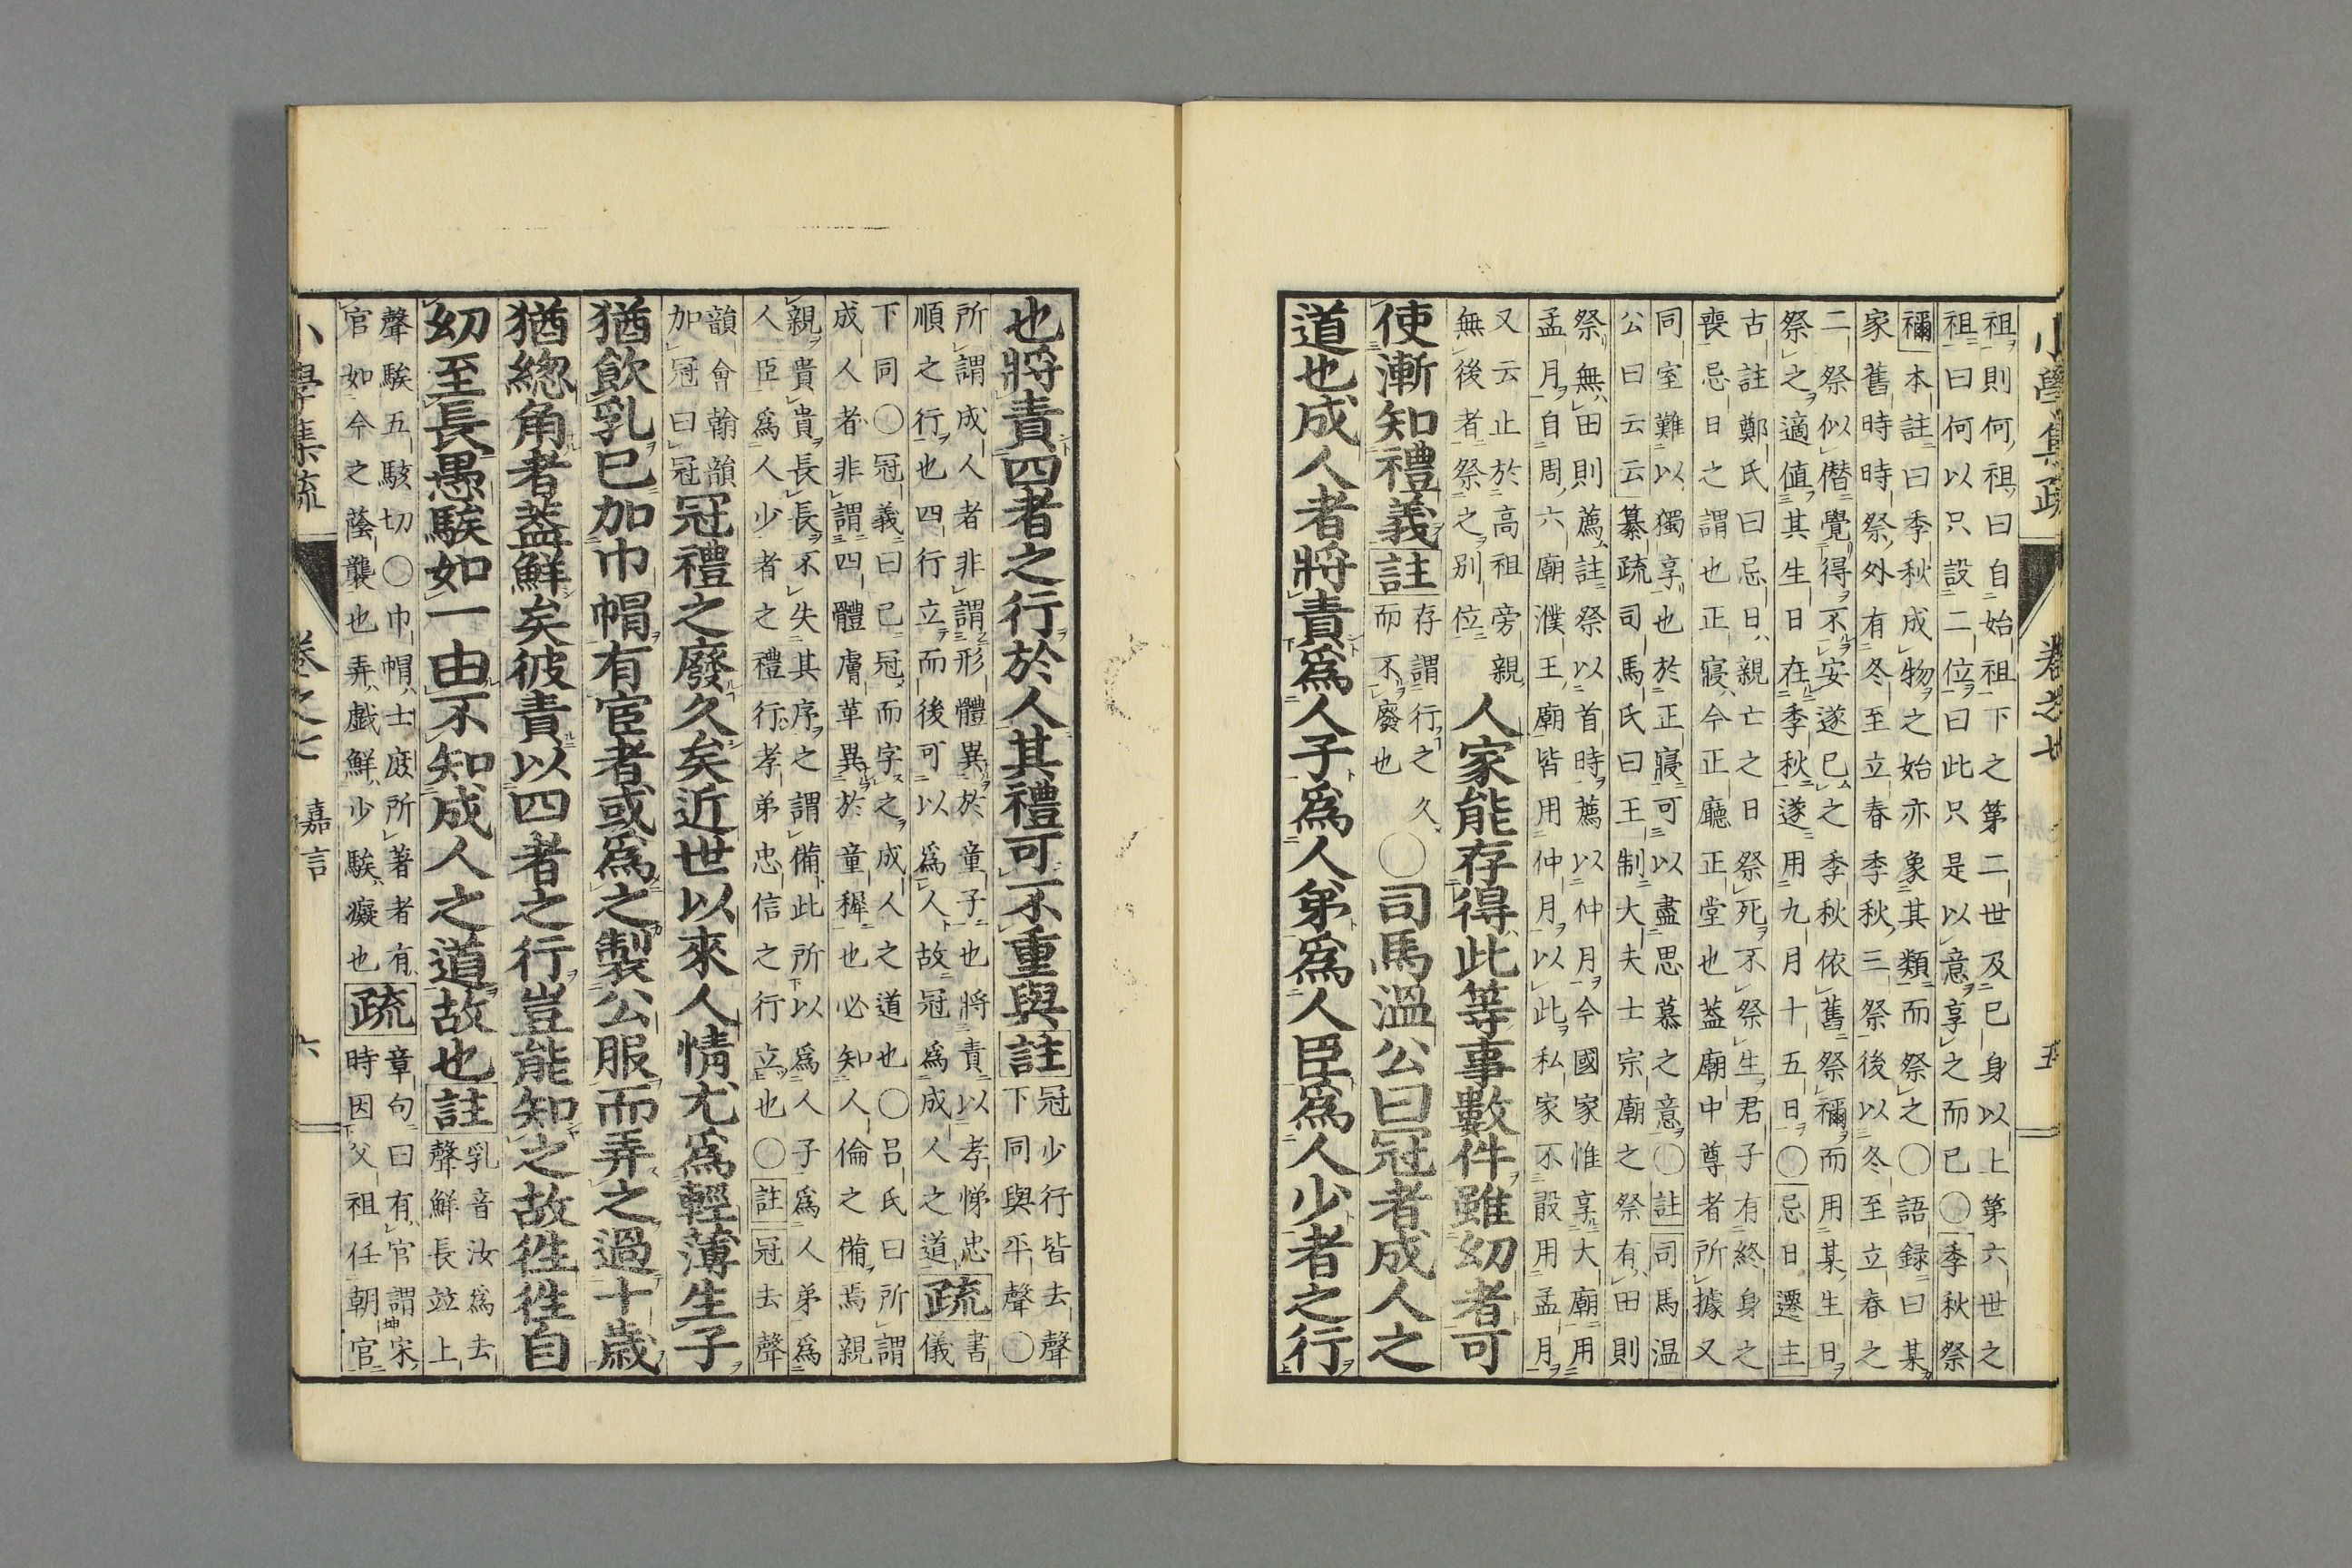 小學集疏 卷之七 五
祖則何祖曰自始祖下之第二世及已身以上第六世之
祖曰何以只設二位曰此只是以意享之而已〇季秋祭
禰本註曰季秋成物之始亦象其類而祭之〇語録曰某
家舊時時祭外有冬至立春季秋三祭後以冬至立春之
二祭似僭覺得不安遂已之季秋依舊祭禰而用某生日
祭之適値其生日在季秋遂用九月十五日〇忌日遷主
古註鄭氏曰忌日親亡之日祭死不祭生君子有終身之
喪忌日之謂也正寢今正廳正堂也葢廟中尊者所據又
同室難以獨享也於正寢可以盡思慕之意〇註司馬温
公曰云云纂疏司馬氏曰王制大夫士宗廟之祭有田則
祭無田則薦註祭以首時薦以仲月今國家惟享大廟用
孟月自周六廟濮王廟皆用仲月以此私家不設用孟月
又云止於高祖旁親
無後者祭之別位
人家能存得此等事數件雖幼者可
使漸知禮義註存謂行之久
而不廢也
〇司馬溫公曰冠者成人之
道也成人者將責爲人子爲人弟爲人臣爲人少者之行
也將責四者之行於人其禮可不重與註冠少行皆去聲
下同與平聲〇
所謂成人者非謂形體異於童子也將責以孝悌忠
順之行也四行立而後可以爲人故冠爲成人之道疏書儀
下同〇冠義曰已冠而字之成人之道也〇呂氏曰所謂
成人者非謂四體膚革異於童穉也必知人倫之備焉親
親貴貴長長不失其序之謂備此所以爲人子爲人弟爲
人臣爲人少者之禮行孝弟忠信之行立也〇註冠去聲
韻會翰韻
加冠曰冠
冠禮之廢久矣近世以來人情尤爲輕薄生子
猶飮乳已加巾帽有官者或爲之製公服而弄之過十歳
猶總角者葢鮮矣彼責以四者之行豈能知之故徃徃自
幼至長愚騃如一由不知成人之道故也註乳音汝爲去
聲鮮長竝上
聲騃五駭切〇巾帽士庶所著者有
官如今之蔭襲也弄戲鮮少騃癡也
疏章句曰有官謂宋
時因父祖任朝官
小學集疏 卷之七 嘉言 六